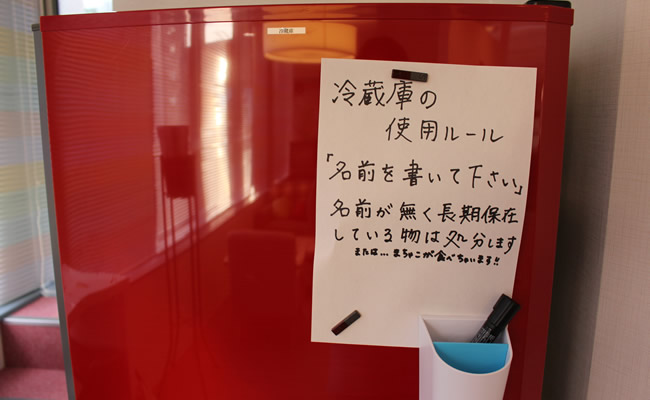 冷蔵庫の
使用ルール
「名前を書いて下さい」
名前が無く長期保在
している物は処分します
または…まちゃこが食べちゃいます!!